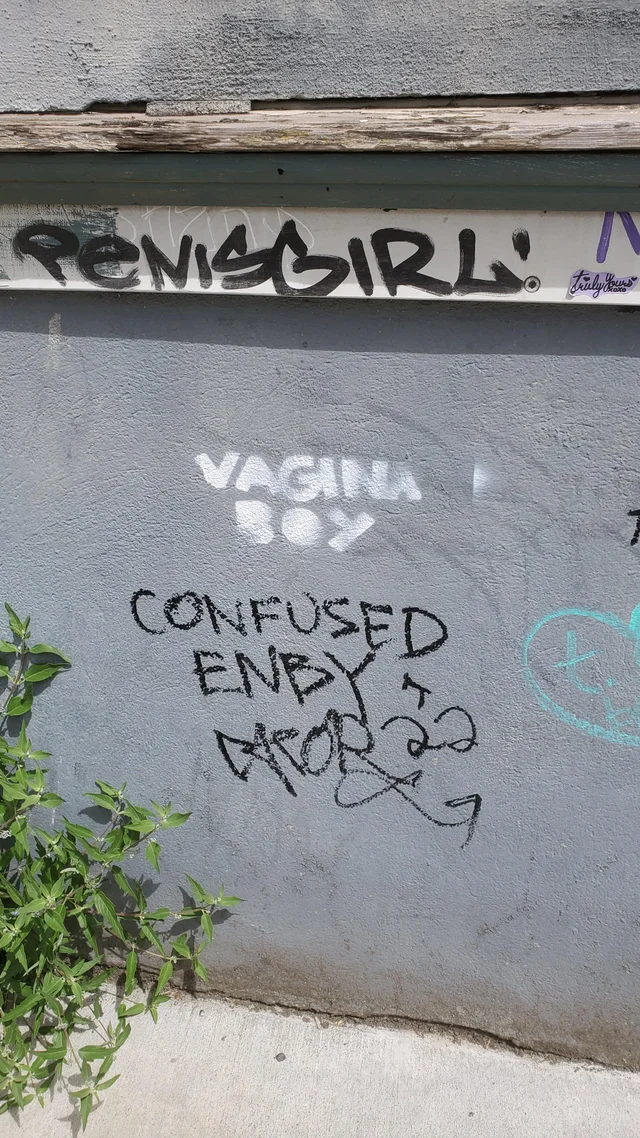 PENISGIRL'
truly yours
xoxo
VAGINA
BOY
CONFUSED
ENBY
22